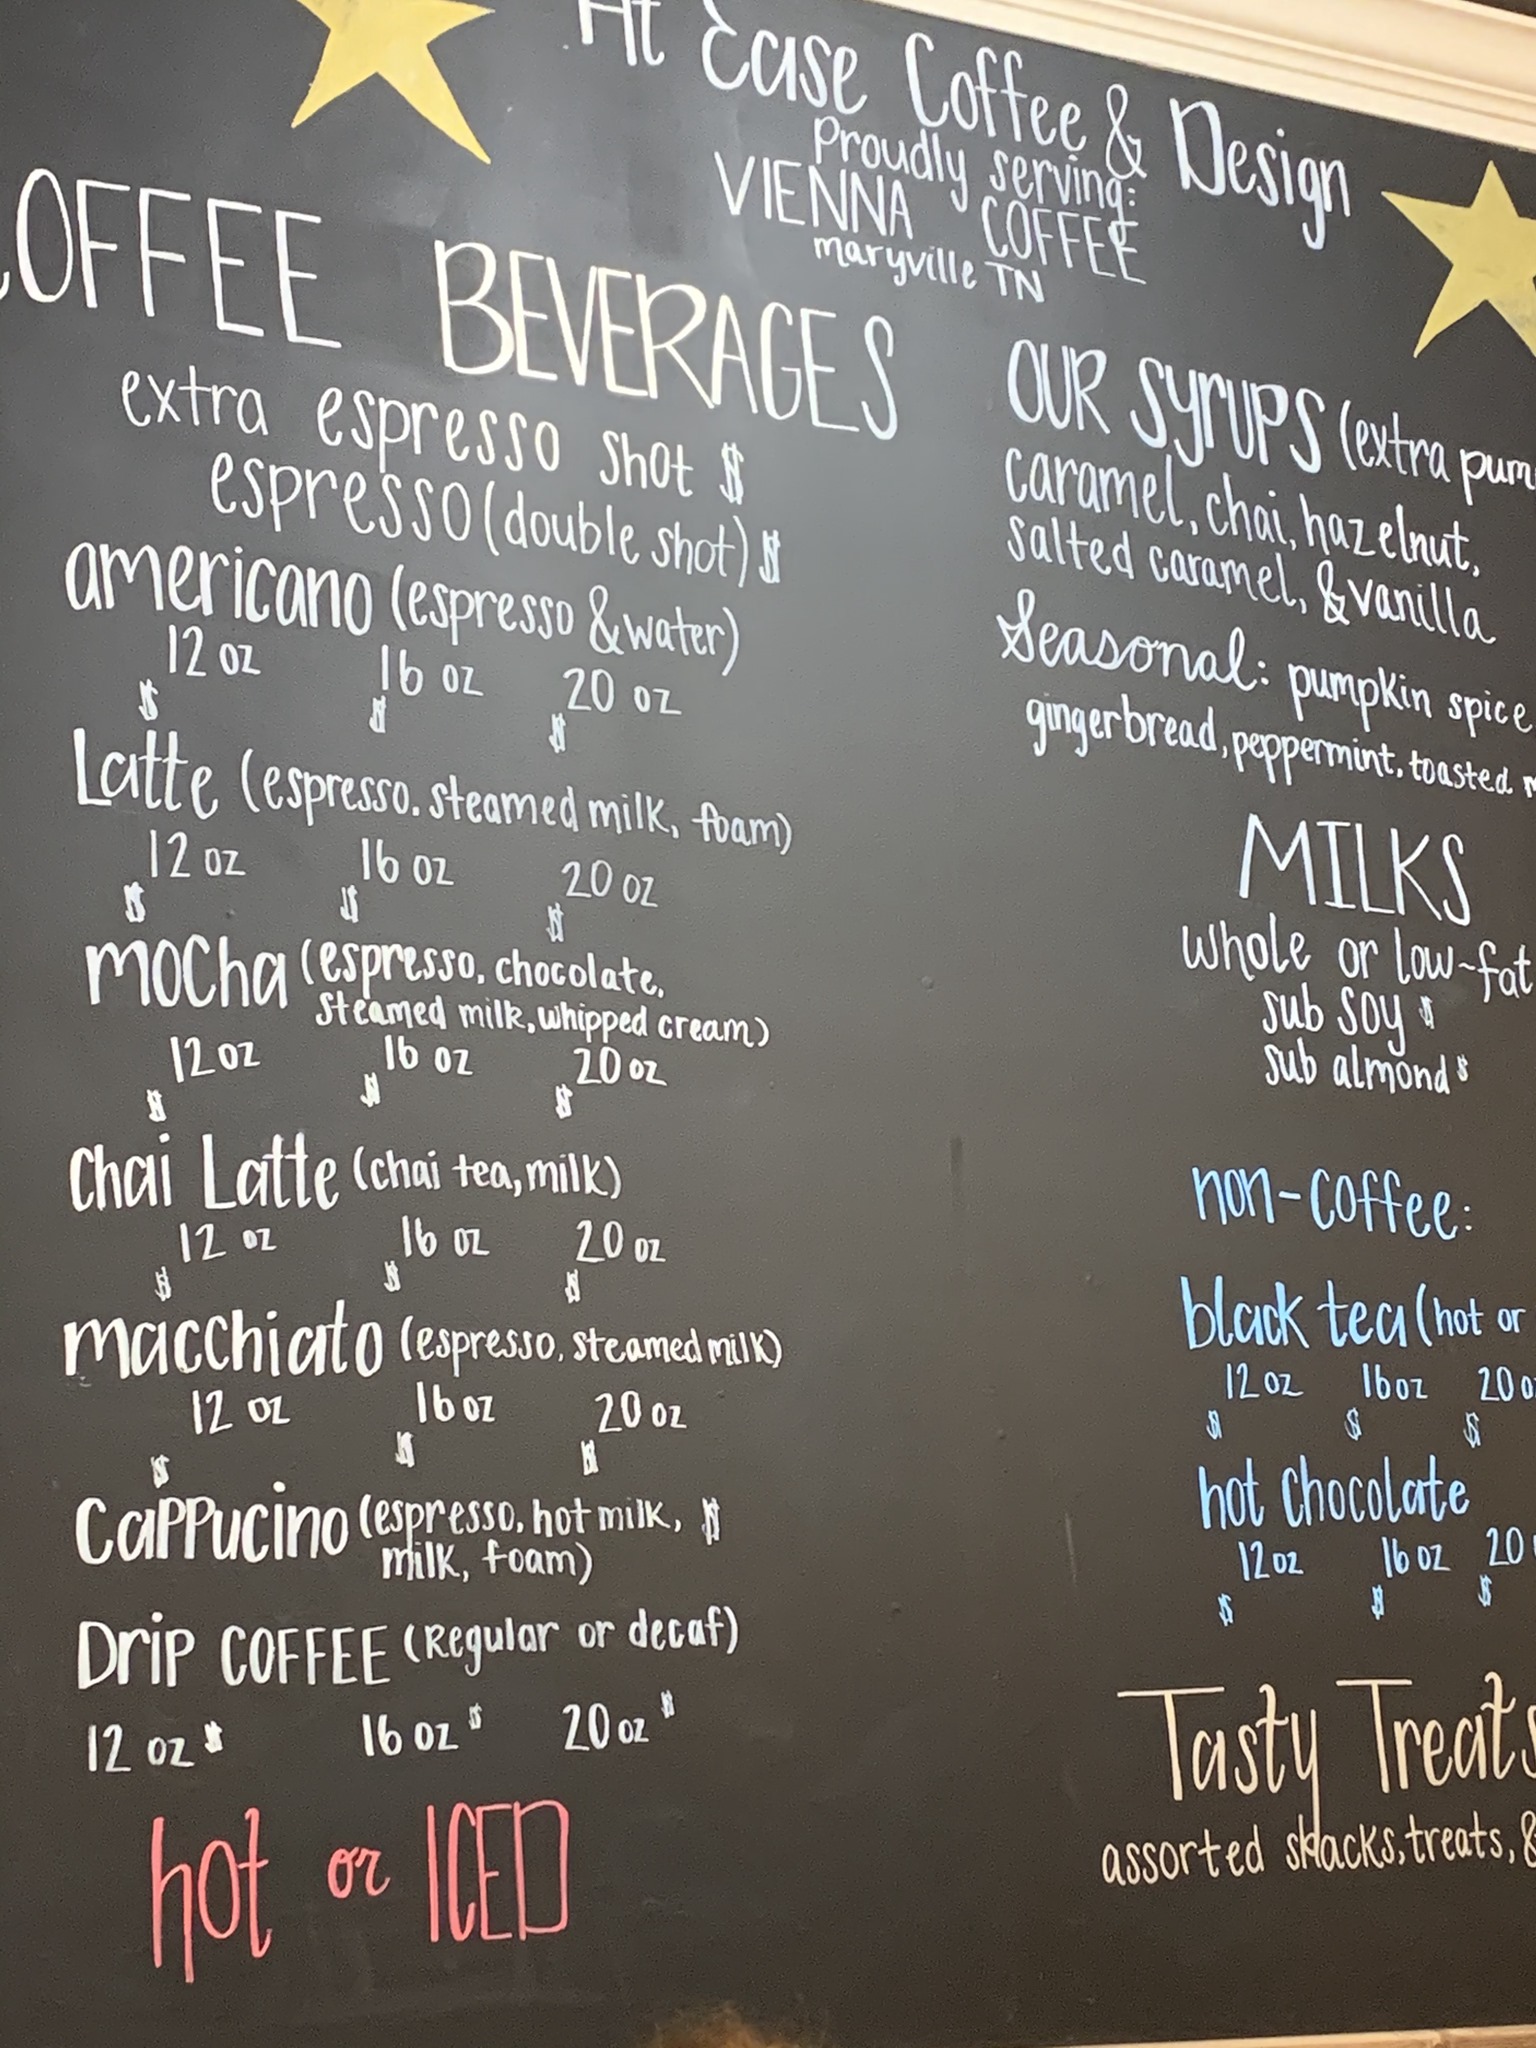 At Ease Coffee & Design
Proudly serving:
VIENNA COFFEE
maryville TN
COFFEE BEVERAGES
extra espresso shot $
espresso (double shot) $
americano (espresso & water)
12 oz 16 oz 20 oz
$ $ $
Latte (espresso, steamed milk, foam)
12 oz 16 oz 20 oz
$ $ $
mocha (espresso, chocolate,
steamed milk, whipped cream)
12 oz 16 oz 20 oz
$ $ $
chai Latte (chai tea, milk)
12 oz 16 oz 20 oz
$ $ $
macchiato (espresso, steamed milk)
12 oz 16 oz 20 oz
$ $ $
Cappucino (espresso, hot milk, $
milk, foam)
Drip COFFEE (Regular or decaf)
12 oz $ 16 oz $ 20 oz $
hot or ICED
OUR SYRUPS (extra
caramel, chai, hazelnut,
salted caramel, & vanilla
Seasonal: pumpkin spice
gingerbread, peppermint, toasted
MILKS
whole or low-fat
sub soy $
sub almond $
non-coffee:
black tea (hot or
12 oz 16 oz 20
$ $ $
hot chocolate
12 oz 16 oz 20
$ $ $
Tasty Treats
assorted snacks, treats, &